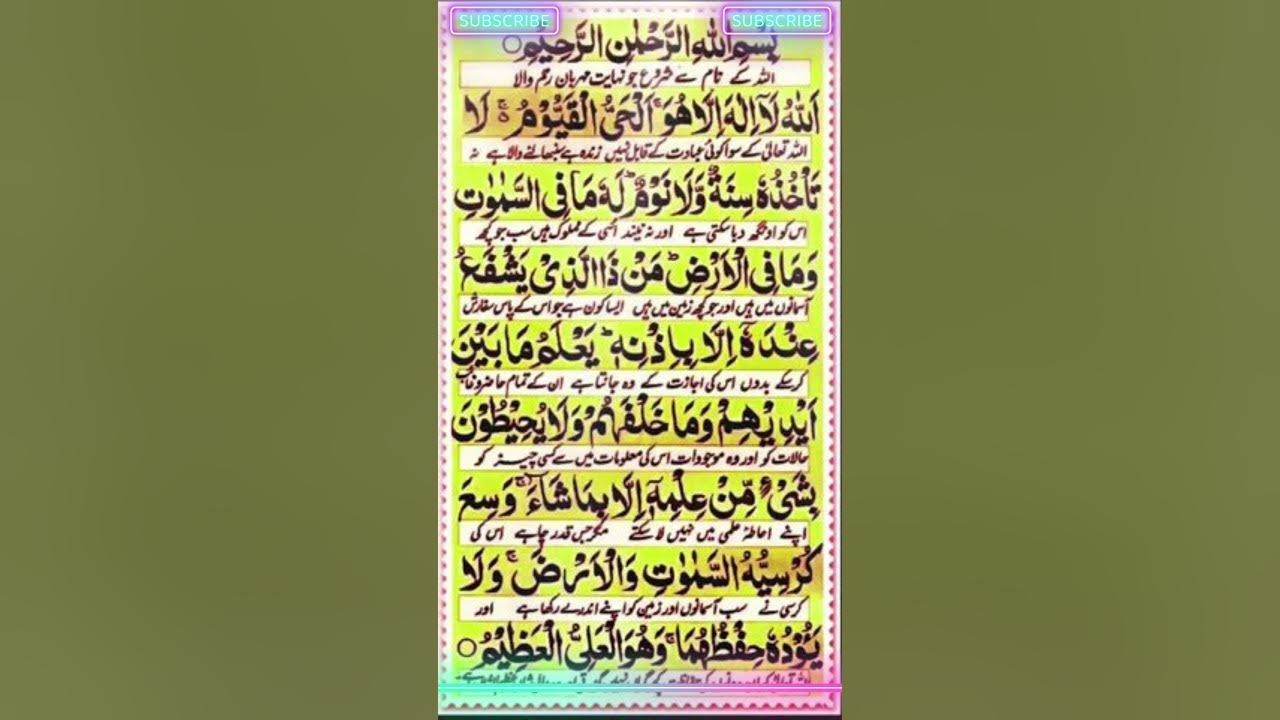 SUBSCRIBE SUBSCRIBE
بِسْمِ اللهِ الرَّحْمٰنِ الرَّحِيْمِ
اللہ کے نام سے شروع جو نہایت مہربان رحم والا
اَللهُ لَآ اِلٰهَ اِلَّا هُوَ ۚ اَلْحَىُّ الْقَيُّوْمُ ۚ لَا
اللہ تعالیٰ کے سوا کوئی عبادت کے قابل نہیں زندہ ہے سنبھالنے والا ہے نہ
تَاْخُذُهٗ سِنَةٌ وَّلَا نَوْمٌ ؕ لَهٗ مَا فِى السَّمٰوٰتِ
اس کو اونگھ دبا سکتی ہے اور نہ نیند اسی کے مملوک ہیں سب جو کچھ
وَمَا فِى الْاَرْضِ ؕ مَنْ ذَا الَّذِىْ يَشْفَعُ
آسمانوں میں ہیں اور جو کچھ زمین میں ہیں ایسا کون ہے جو اس کے پاس سفارش
عِنْدَهٗٓ اِلَّا بِاِذْنِهٖ ؕ يَعْلَمُ مَا بَيْنَ
کرسکے بدوں اس کی اجازت کے وہ جانتا ہے ان کے تمام حاضر و غائب
اَيْدِيْهِمْ وَمَا خَلْفَهُمْ ۚ وَلَا يُحِيْطُوْنَ
حالات کو اور وہ موجودات اس کی معلومات میں سے کسی چیز کو
بِشَىْءٍ مِّنْ عِلْمِهٖٓ اِلَّا بِمَا شَآءَ ۚ وَسِعَ
اپنے احاطۂ علمی میں نہیں لا سکتے مگر جس قدر چاہے اس کی
كُرْسِيُّهُ السَّمٰوٰتِ وَالْاَرْضَ ۚ وَلَا
کرسی نے سب آسمانوں اور زمین کو اپنے اندر لے رکھا ہے اور
يَئُوْدُهٗ حِفْظُهُمَا ۚ وَهُوَ الْعَلِىُّ الْعَظِيْمُ